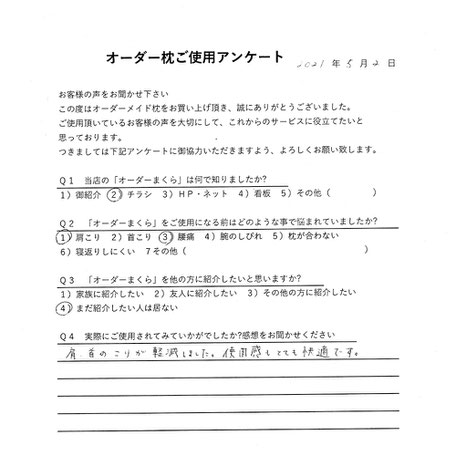 オーダー枕ご使用アンケート 2021 年 5 月 2 日
お客様の声をお聞かせ下さい
この度はオーダーメイド枕をお買い上げ頂き、誠にありがとうございました。
ご使用頂いているお客様の声を大切にして、これからのサービスに役立てたいと
思っております。
つきましては下記アンケートに御協力いただきますよう、よろしくお願い致します。
Q1 当店の「オーダーまくら」は何で知りましたか?
1）御紹介 2）チラシ 3）HP・ネット 4）看板 5）その他（ ）
Q2 「オーダーまくら」をご使用になる前はどのような事で悩まれていましたか?
1）肩こり 2）首こり 3）腰痛 4）腕のしびれ 5）枕が合わない
6）寝返りしにくい 7その他（ ）
Q3 「オーダーまくら」を他の方に紹介したいと思いますか?
1）家族に紹介したい 2）友人に紹介したい 3）その他の方に紹介したい
4）まだ紹介したい人は居ない
Q4 実際にご使用されてみていかがでしたか?感想をお聞かせください
肩、首のこりが軽減しました。使用感もとても快適です。